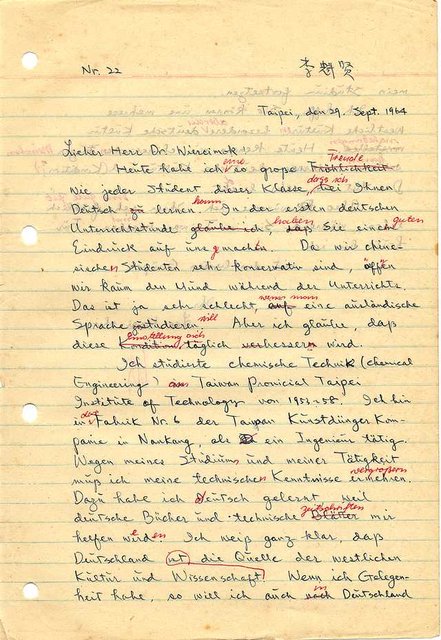 Nr. 22 李魁賢
Taipei, den 29. Sept. 1964
Lieber Herr Dr. Wiercimok
eine Freude
Heute habe ich so große Fröhlichkeit
dass ich
wie jeder Student dieser Klasse, bei Ihnen
kann
Deutsch zu lernen. In der ersten deutschen
haben guten
Unterrichtsstunde glaube ich, daß Sie einen
Eindruck auf uns gemacht. Da wir chine-
sischen Studenten sehr konservativ sind, öffnen
wir kaum den Mund während der Unterrichts.
wenn man
Das ist ja sehr schlecht, auf eine ausländische
will
Sprache zu studieren. Aber ich glaube, daß
Einstellung sich
diese Kondition täglich verbessern wird.
Ich studierte chemische Technik (Chemical
Engineering) am Taiwan Provincial Taipei
Institute of Technology von 1953-58. Ich bin
der
in Fabrik Nr. 6 der Taiwan Kunstdünger Kom-
panie in Nankang, als ein Ingenieur tätig.
Wegen meines Studiums und meiner Tätigkeit
vergrößern
muß ich meine technischen Kenntnisse ermehren.
Dazu habe ich Deutsch gelernt, weil
Zeitschriften
deutsche Bücher und technische Blätter mir
helfen werden. Ich weiß ganz klar, daß
Deutschland ist die Quelle der westlichen
Kultur und Wissenschaft. Wenn ich Gelegen-
in
heit habe, so will ich auch nach Deutschland